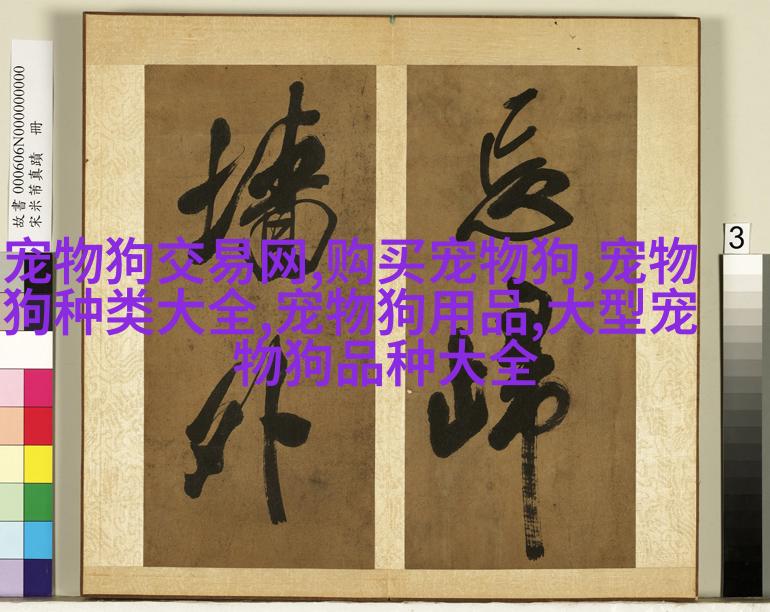 故書 000606N000000000
宋米芾真蹟 冊
忘歸
墻外
宠物狗交易网,购买宠物狗,宠物
狗种类大全,宠物狗用品,大型宠
物狗品种大全
3